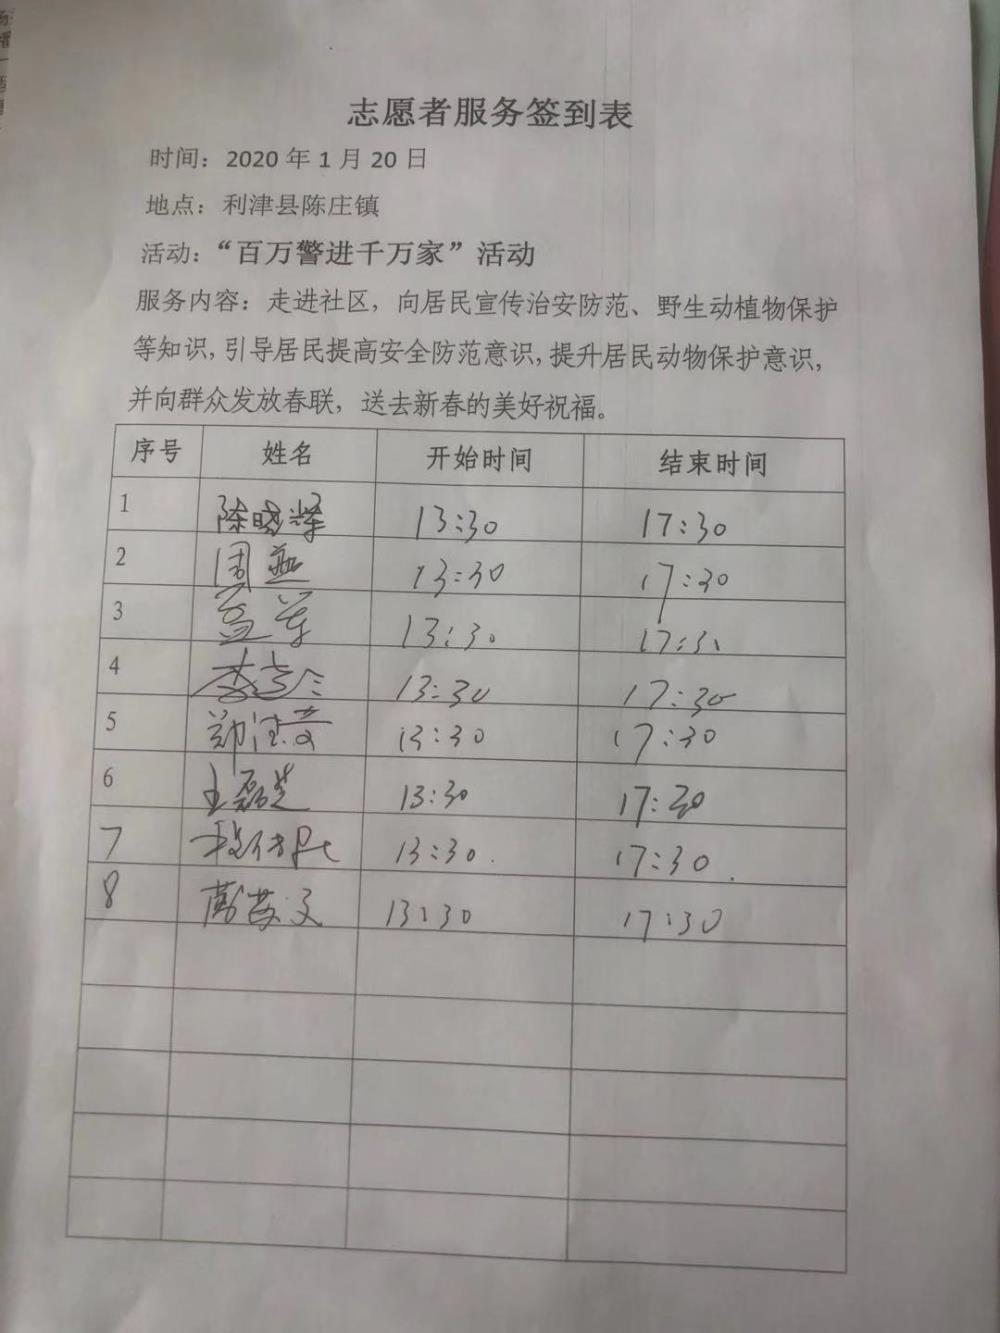 志愿者服务签到表
时间：2020 年 1 月 20 日
地点：利津县陈庄镇
活动：“百万警进千万家”活动
服务内容：走进社区，向居民宣传治安防范、野生动植物保护
等知识，引导居民提高安全防范意识，提升居民动物保护意识，
并向群众发放春联，送去新春的美好祝福。
序号 姓名 开始时间 结束时间
1 陈晓辉 13:30 17:30
2 周燕 13:30 17:30
3 13:30 17:30
4 李 13:30 17:30
5 郑 13:30 17:30
6 王磊芝 13:30 17:30
7 13:30. 17:30.
8 文 13:30 17:30